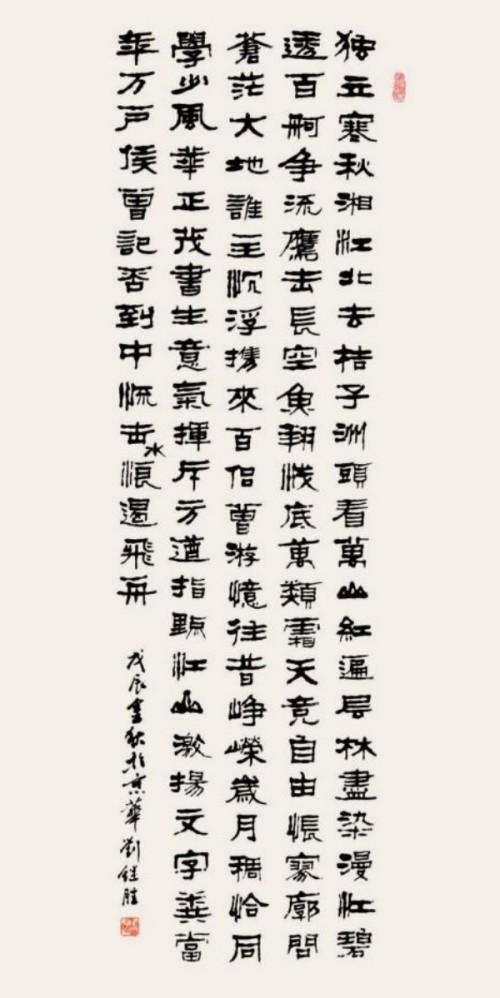 独立寒秋湘江北去桔子洲頭看萬山紅遍层林盡染漫江碧
透百舸争流鷹击長空魚翔浅底萬類霜天竞自由悵寥廓問
蒼茫大地誰主沉浮携來百侣曾游憶往昔峥嵘歲月稠恰同
學少風華正茂書生意氣揮斥方遒指點江山激揚文字糞當
年万户侯曾記否到中流击水浪遏飛舟
戊辰金秋於京華劉继胜